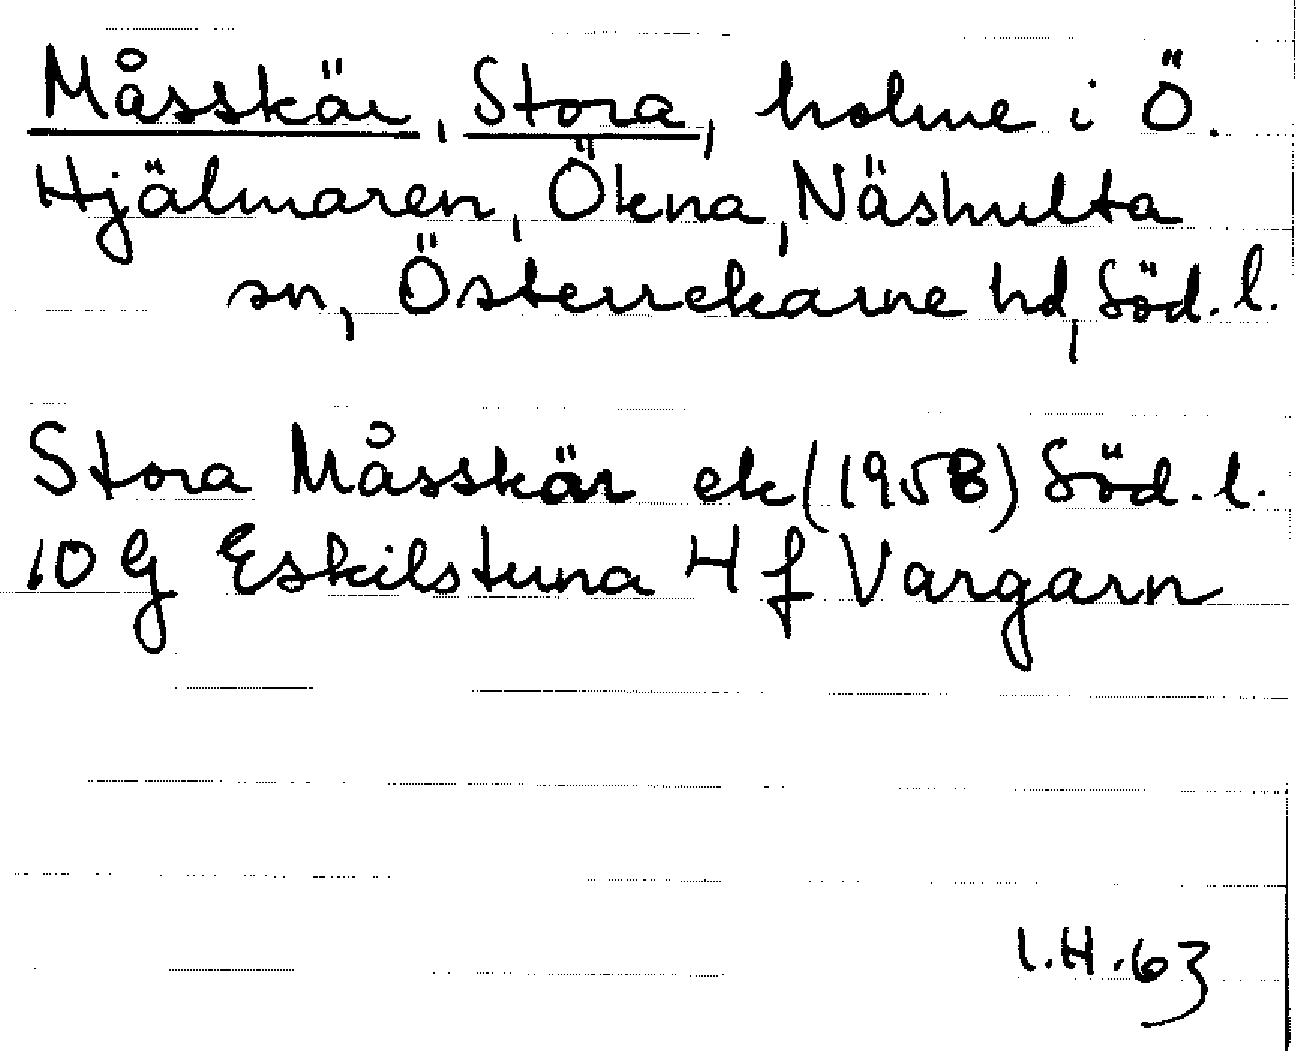 Måsskär, Stora, holme i Ö.
Hjälmaren, Ökna, Näshulta
sn, Österrekarne hd, Söd. l.
Stora Måsskär ek (1958) Söd. l.
10 G Eskilstuna 4 f Vargarn
I.H.63